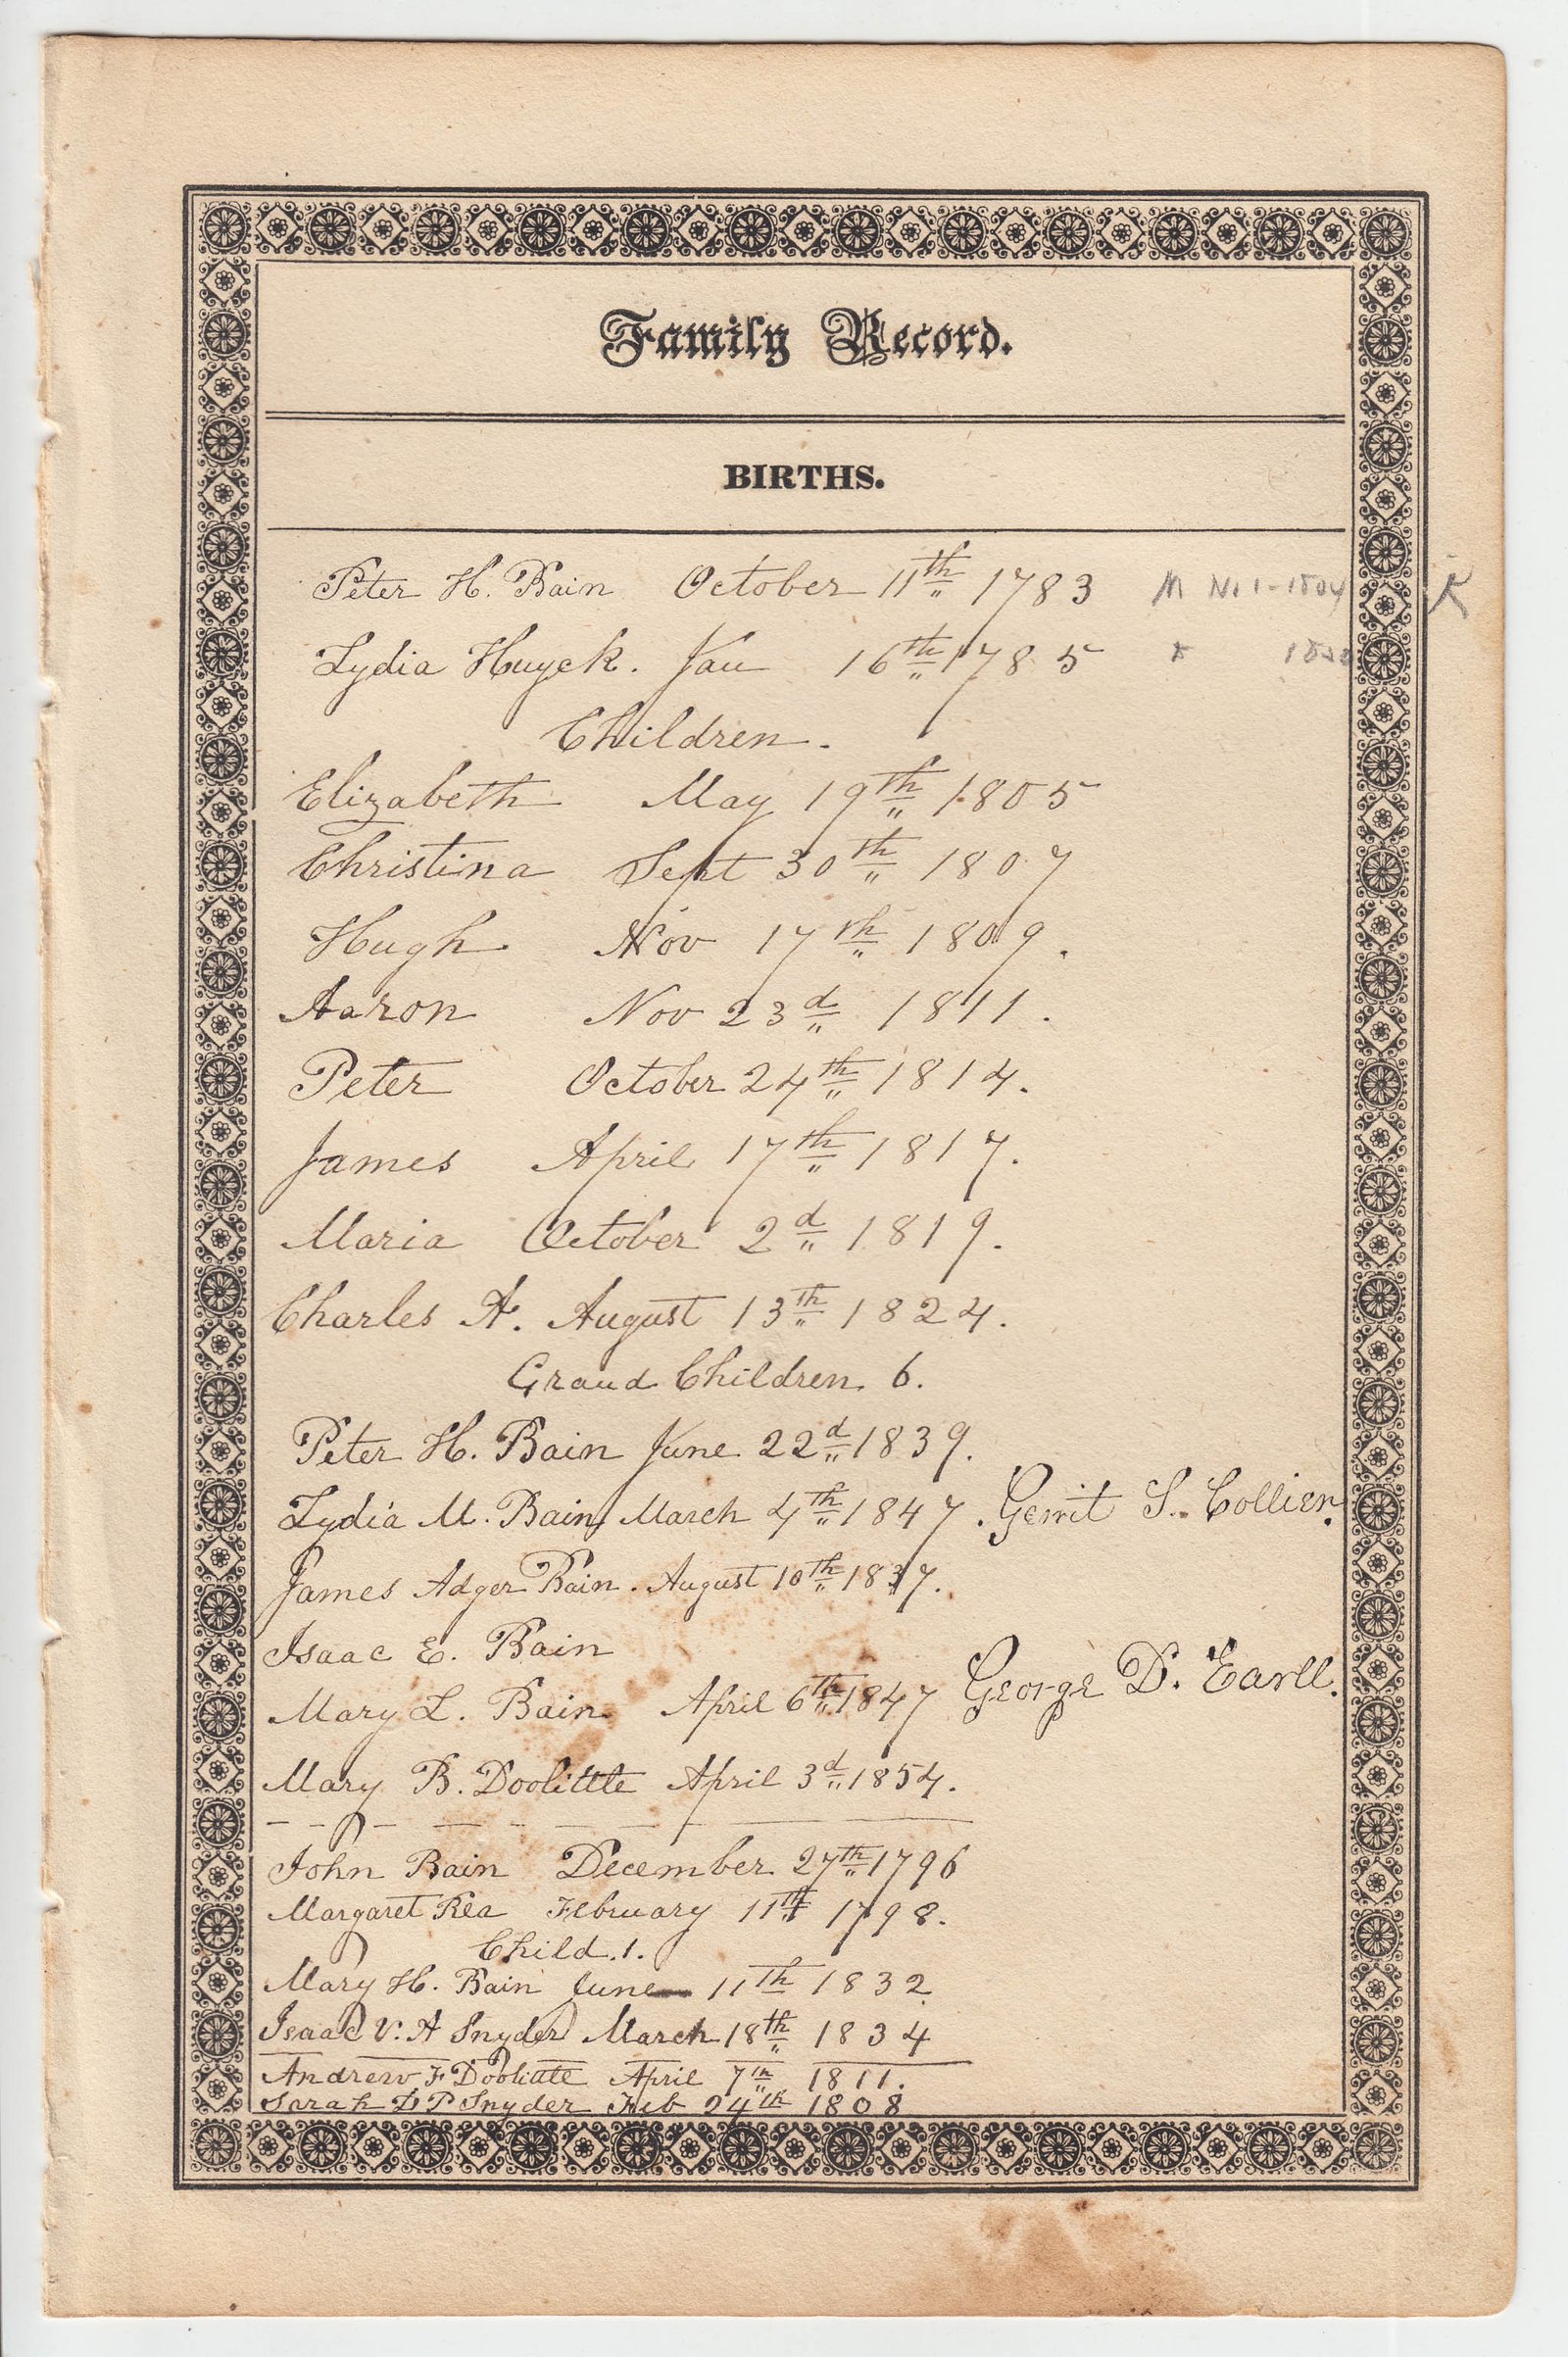 Family Record.
BIRTHS.
Peter H. Bain October 11th 1783 M
Lydia Huyck. Jan 16th 1785
Children.
Elizabeth May 19th 1805
Christina Sept 30th 1807
Hugh Nov 17th 1809.
Aaron Nov 23d 1811.
Peter October 24th 1814.
James April 17th 1817.
Maria October 2d 1819.
Charles A. August 13th 1824.
Grand Children 6.
Peter H. Bain June 22d 1839.
Lydia M. Bain March 4th 1847. Gerrit S. Collier.
James Adger Bain. August 10th 1837.
Isaac E. Bain
Mary L. Bain April 6th 1847 George D. Earll.
Mary B. Doolittle April 3d 1854.
John Bain December 27th 1796
Margaret Rea February 11th 1798.
Child. 1.
Mary H. Bain June 11th 1832
Isaac V. A Snyder March 18th 1834
Andrew F Doolittle April 7th 1811.
Sarah D P Snyder Feb 24th 1808